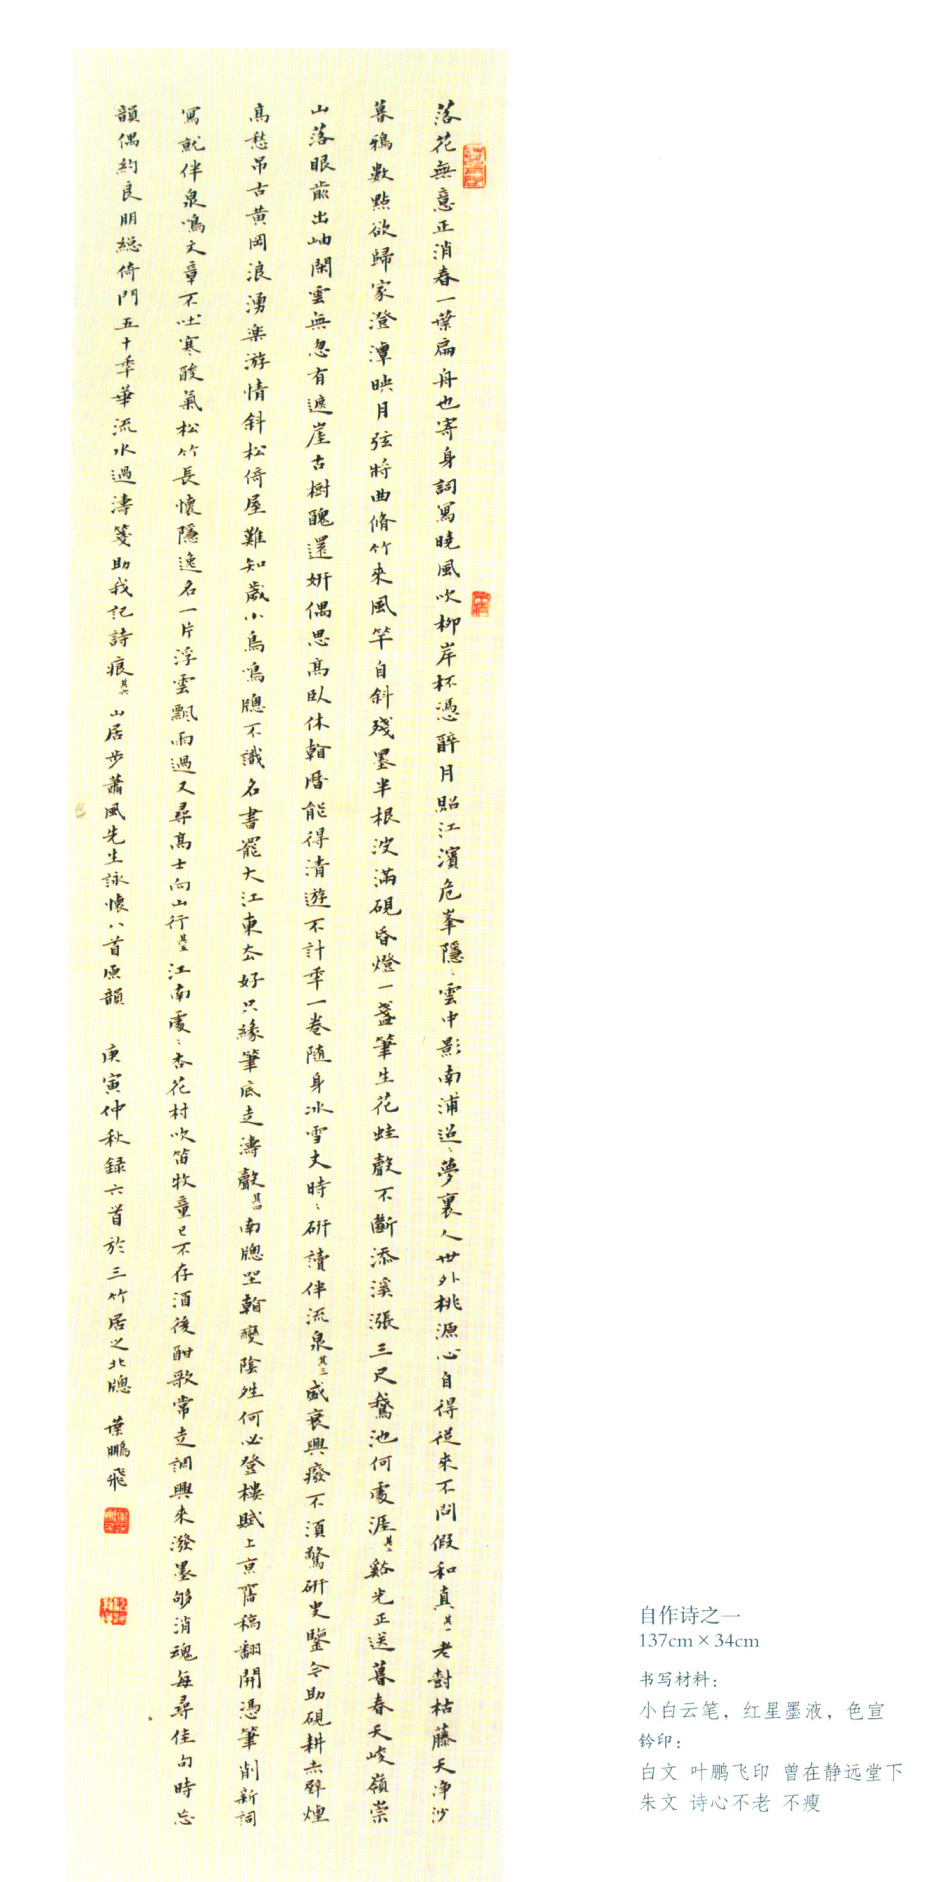 落花無意正消春一葉扁舟也寄身詞寫曉風吹柳岸杯憑醉月照江濱危峯隱〻雲中影南浦迢〻夢裏人世外桃源心自得從來不問假和真其一老樹枯藤天净沙
暮鴉數點欲歸家澄潭映月弦將曲脩竹來風竿自斜殘墨半根波滿硯昏燈一盞筆生花蛙聲不斷添溪漲三尺鵞池何處涯其二谿光正送暮春天峻嶺崇
山落眼前出岫閑雲無忽有遮崖古樹醜還妍偶思高臥休翰曆能得清遊不計年一卷隨身冰雪文時〻研讀伴流泉其三盛衰興廢不須驚研史鑒今助硯耕赤壁煙
高愁吊古黄岡浪湧楽游情斜松倚屋難知歲小鳥鳴牕不識名書罷大江東去好只緣筆底走濤聲其四南牕坐翰變陰姓何必登樓賦上京舊稿翻開憑筆削新詞
寫就伴泉鳴文章不吐寒酸氣松竹長懷隱逸名一片浮雲飄雨過又尋高士向山行其五江南處〻杏花村吹笛牧童已不存酒後酣歌常走調興來潑墨够消魂每尋佳句時忘
韻偶約良朋總倚門五十年華流水過濤箋助我記詩痕其六山居步蕭風先生詠懷八首原韻 庚寅仲秋録六首於三竹居之北牕 葉鵬飛
自作诗之一
137cm×34cm
书写材料：
小白云笔，红星墨液，色宣
钤印：
白文 叶鹏飞印 曾在静远堂下
朱文 诗心不老 不瘦